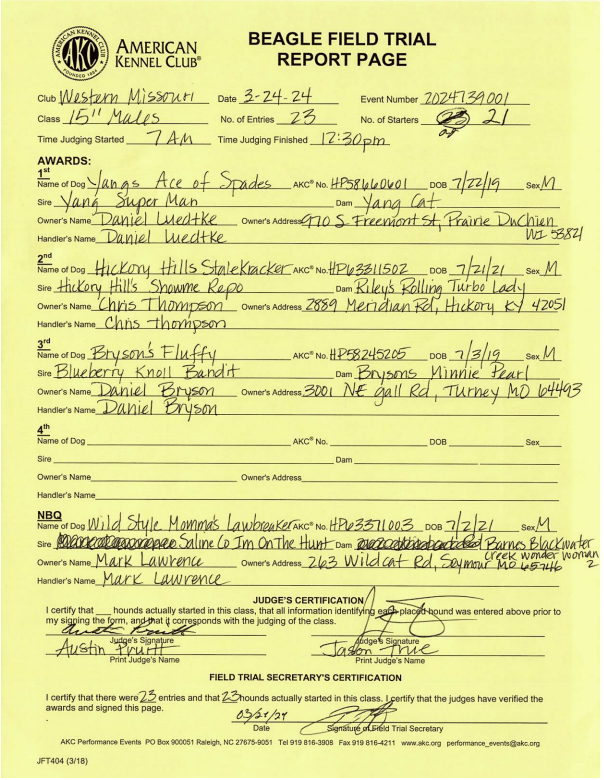 AMERICAN KENNEL CLUB
AKC
FOUNDED 1884
AMERICAN
KENNEL CLUB®
BEAGLE FIELD TRIAL
REPORT PAGE
Club Western Missouri Date 3-24-24 Event Number 2024739001
Class 15" Males No. of Entries 23 No. of Starters 21
Time Judging Started 7 AM Time Judging Finished 12:30pm
AWARDS:
1st
Name of Dog Yangs Ace of Spades AKC® No. HP58660601 DOB 7/22/19 Sex M
Sire Yang Super Man Dam Yang Cat
Owner's Name Daniel Luedtke Owner's Address 970 S Freemont St, Prairie DuChien
WI 53821
Handler's Name Daniel Luedtke
2nd
Name of Dog Hickory Hills StaleKracker AKC® No. HP63311502 DOB 7/21/21 Sex M
Sire Hickory Hill's Showme Repo Dam Riley's Rolling Turbo Lady
Owner's Name Chris Thompson Owner's Address 2889 Meridian Rd, Hickory KY 42051
Handler's Name Chris Thompson
3rd
Name of Dog Bryson's Fluffy AKC® No. HP58245205 DOB 7/3/19 Sex M
Sire Blueberry Knoll Bandit Dam Brysons Minnie Pearl
Owner's Name Daniel Bryson Owner's Address 3001 NE gall Rd, Turney MO 64493
Handler's Name Daniel Bryson
4th
Name of Dog AKC® No. DOB Sex
Sire Dam
Owner's Name Owner's Address
Handler's Name
NBQ
Name of Dog Wild Style Momma's Lawbreaker AKC® No. HP63371003 DOB 7/2/21 Sex M
Sire Saline Co Im On The Hunt Dam Barnes Blackwater
creek wonder woman
2
Owner's Name Mark Lawrence Owner's Address 263 Wildcat Rd, Seymour MO 65746
Handler's Name Mark Lawrence
JUDGE'S CERTIFICATION
I certify that ___ hounds actually started in this class, that all information identifying each placed hound was entered above prior to
my signing the form, and that it corresponds with the judging of the class.
Austin Pruitt
Judge's Signature Judge's Signature
Austin Pruitt Jason True
Print Judge's Name Print Judge's Name
FIELD TRIAL SECRETARY'S CERTIFICATION
I certify that there were 23 entries and that 23 hounds actually started in this class. I certify that the judges have verified the
awards and signed this page.
03/24/24
Date Signature of Field Trial Secretary
AKC Performance Events PO Box 900051 Raleigh, NC 27675-9051 Tel 919 816-3908 Fax 919 816-4211 www.akc.org performance_events@akc.org
JFT404 (3/18)